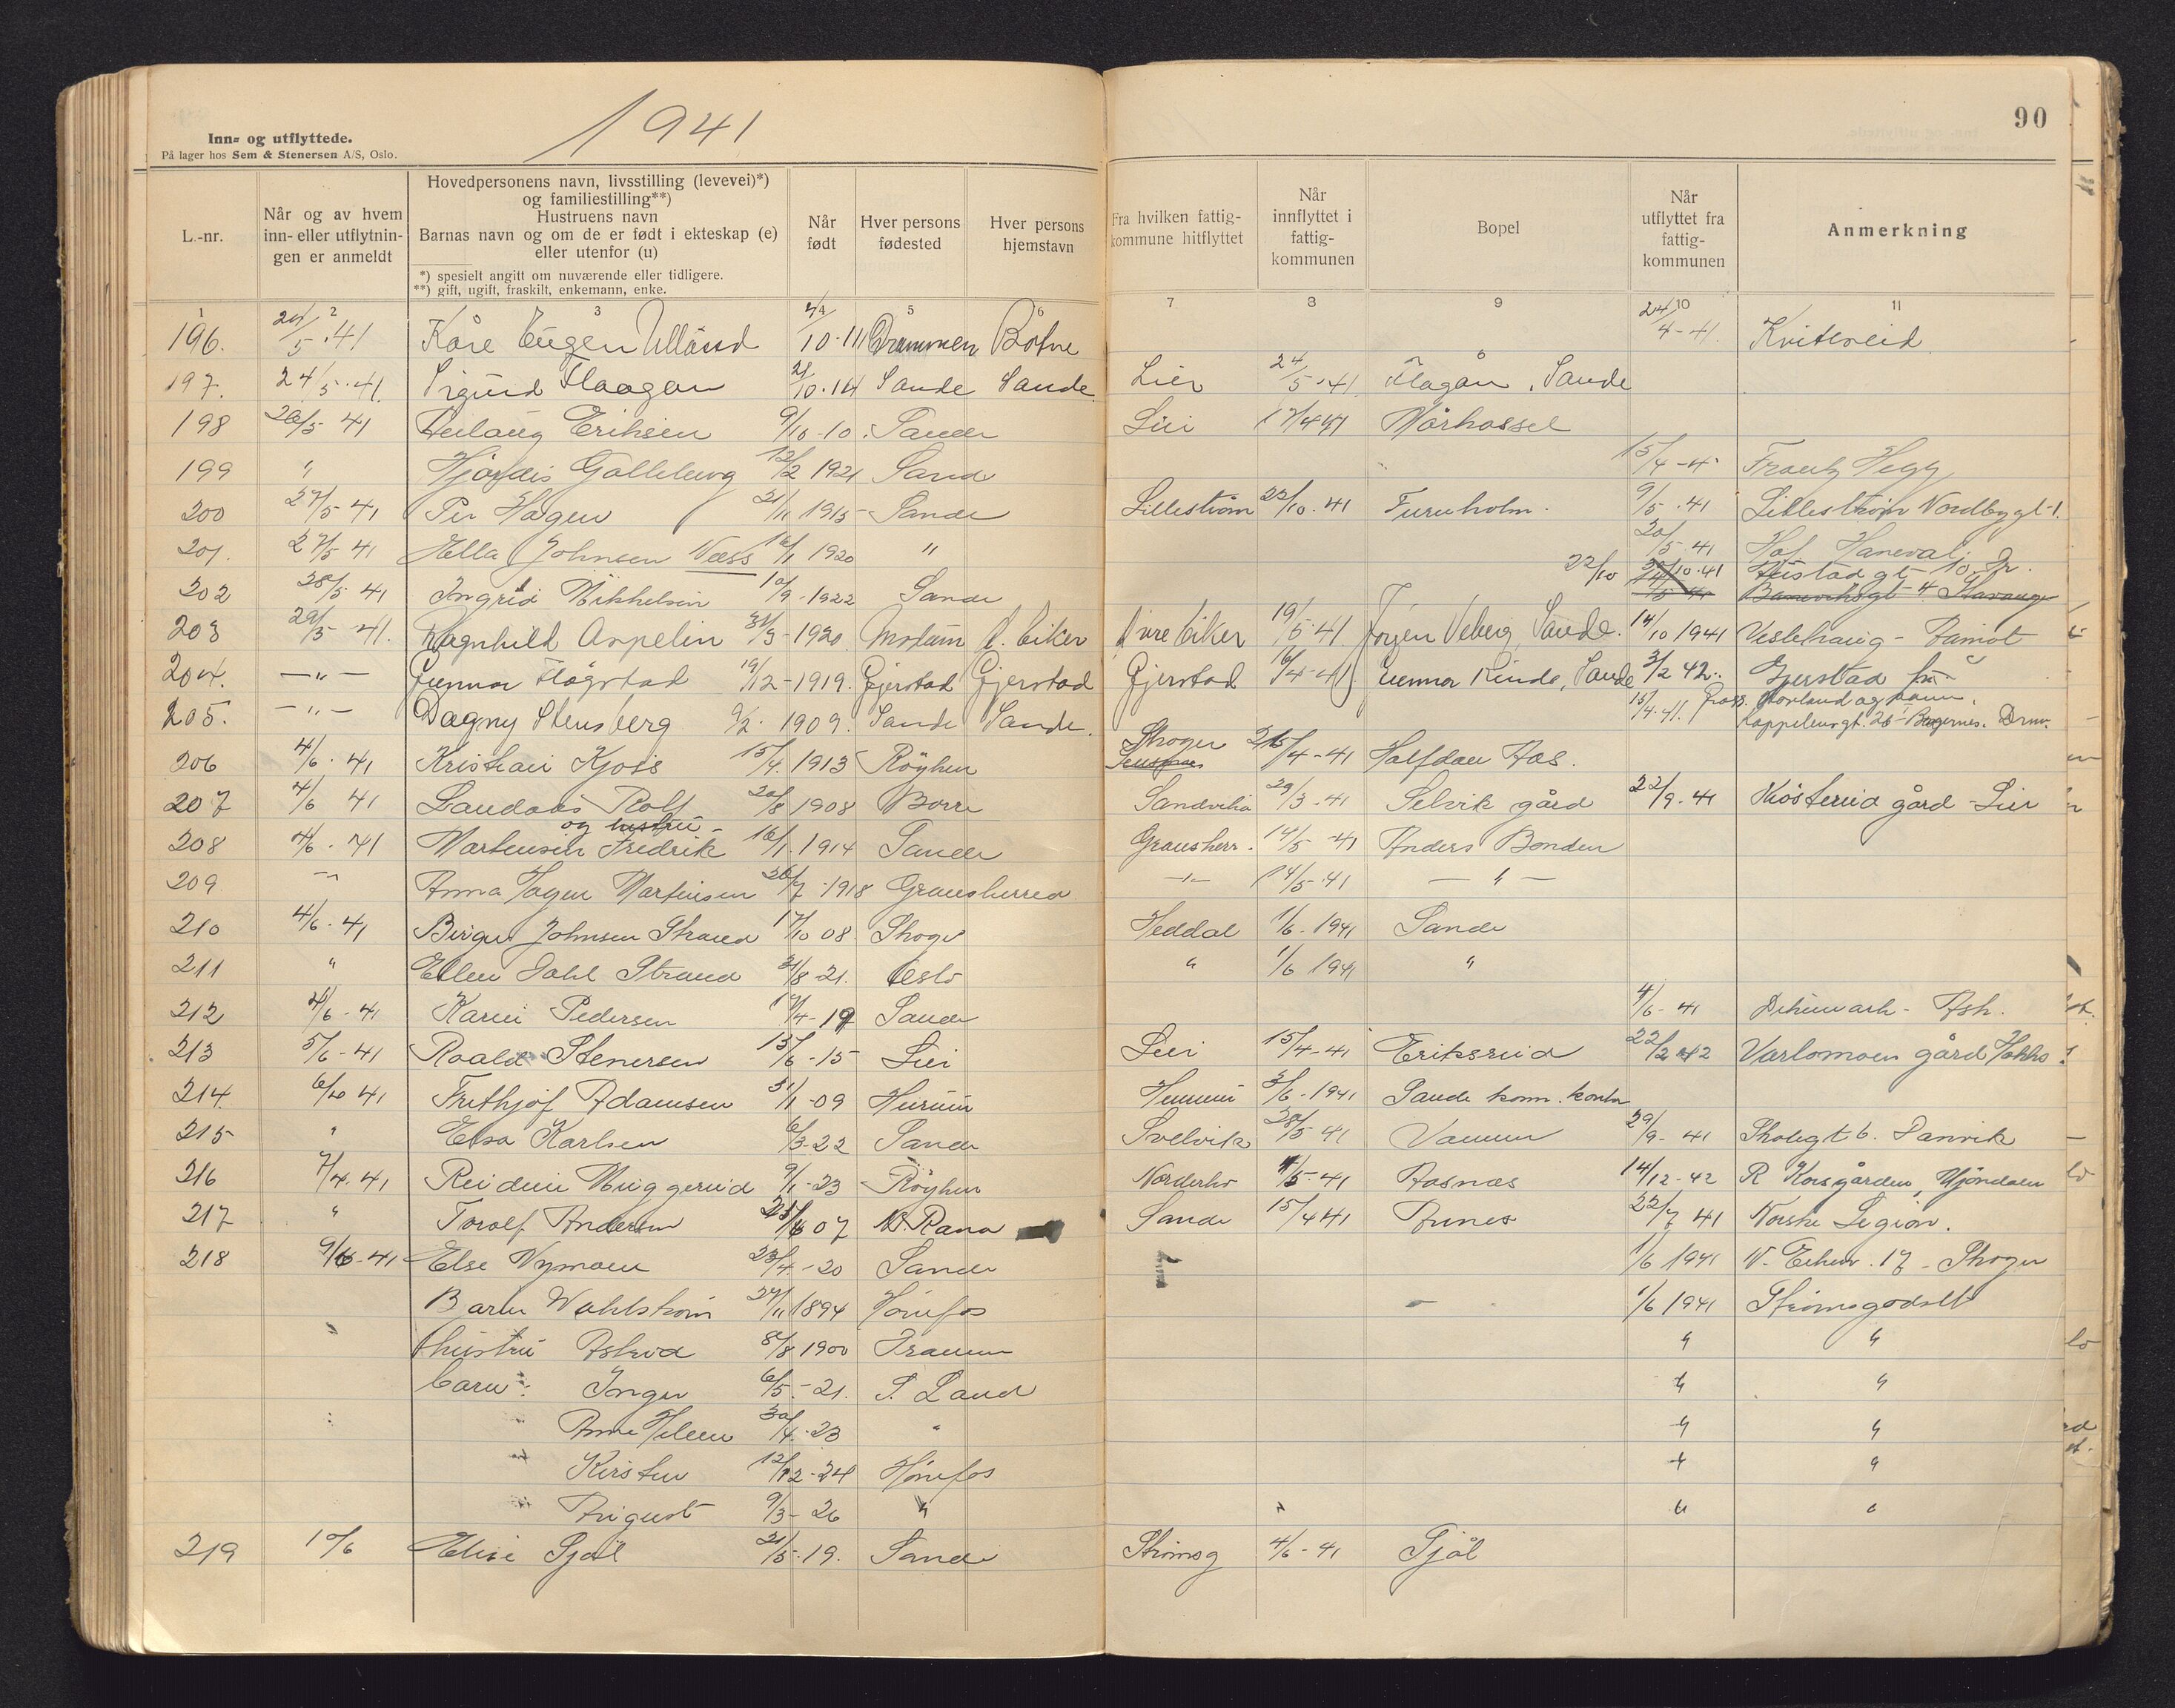 1941
90
Inn- og utflyttede.
På lager hos Sem & Stenersen A/S, Oslo.
L.-nr.
Når og av hvem inn- eller utflytnin-gen er anmeldt
Hovedpersonens navn, livsstilling (levevei)*)
og familiestilling**)
Hustruens navn
Barnas navn og om de er født i ekteskap (e)
eller utenfor (u)
*) spesielt angitt om nuværende eller tidligere.
**) gift, ugift, fraskilt, enkemann, enke.
Når født
Hver persons fødested
Hver persons hjemstavn
Fra hvilken fattig-kommune hitflyttet
Når innflyttet i fattig-kommunen
Bopel
Når utflyttet fra fattig-kommunen
Anmerkning
1 2 3 4 5 6 7 8 9 10 11
196. 24/5.41 Kåre Eugen Ulland 10-11 Drammen Botne 24/4-41 Kviteseid
197. 24/5.41. Sigurd Flaagan 21/10.14 Sande Sande Lier 24/5.41 Flagån, Sande
198 26/5 41 Aslaug Eriksen 9/10-10. Sande Lier 17/4 41 Mårhassel
199 " Hjørdis Galleberg 12/2 1921 Sande 15/4-4 Frantz Hegg
200 27/5 41 Per Hagen 21/11 1915 Sande Lillestrøm 22/10.41 Furuholm. 9/5.41 Lillestrøm Nordbygt-1.
201. 27/5 41 Ella Johnsen Næss 16/1 1920 " 20/5 41 Hof
202 28/5 41 Ingrid Mikkelsen 10/9-1922 Sande 22/10
203 29/5 41. Ragnhild Aspelin 31/3-1920. Modum Ø. Eiker Øvre Eiker 19/5-41 Jørgen Veberg Sande. 14/10 1941 Vestehaug - Åmot
204. -"- Gunnar Hågstad 19/12-1919. Gjerstad Gjerstad Gjerstad 16/4-41 Gunnar Kinde, Sande 3/2 42. Gjerstad
205. -"- Dagny Stensberg 9/2. 1909. Sande Sande. 15/4.41. Kappelensgt. 26 Bragernes. Drm.
206 4/6.41 Kristian Kjøss 15/4. 1913 Røyken Skoger 25/4-41 Halfdan Aas.
207 4/6 41 Landaas Rolf 20/8 1908 Borre Sandvika 29/3-41 Selvik gård 22/9-41 Kiøsterud gård - Lier
og hustru -
208 4/6.41 Martinsen Fredrik 16/1. 1914 Sande Gransherr. 14/5 41 Anders Bonden
209 -"- Anna Hagen Martinsen 26/7-1918 Gransherred -"- 14/5.41 -"-
210 4/6.41 Birger Johnsen Strand 17/10 08 Skoger Heddal 1/6-1941 Sande
211 " Ellen Dahl Strand 21/8-21. Oslo " 1/6 1941 "
212 4/6-41 Karin Pedersen 17/4-19 Sande 4/6-41 Dikemark - Ask.
213 5/6-41 Roald Stenersen 15/6-15 Lier Lier 15/4-41 Eriksrud 22/2 42 Varlomoen gård Hokks.
214. 6/6 41 Frithjof Adamsen 31/1-09 Hurum Hurum 3/6-1941 Sande kom. kontor
215 " Elsa Karlsen 6/3-22 Sande Svelvik 28/5 41 Vammen 29/9-41 Skolegt 6. Danvik
216 7/4.41 Reidun Muggerud 9/1-23 Røyken Norderhov 1/5-41 Aasnæs 14/12-42 R Korsgården, Mjøndalen
217 " Toralf Andersen 23/6 07 N. Rana Sande 15/4 41 Aunes 22/7 41 Norske Legion.
218 9/6-41 Else Nymoen 23/4-20 Sande 1/6 1941 N. Eiker. 17 - Skoger
Wahlstrøm 27/11 1894 Hønefos 1/6 1941 Strømsgodset
hustru Astrid 8/8 1900 Drammen " "
barn: Inger 6/5-21. S. Land " "
" Anne Helene 30/4-23 " " "
" Kirsten 12/12-24 Hønefos " "
" August 9/3-26 " " "
219 10/6 Elise Gjøl 21/5-19. Sande Strømsg 4/6-41 Gjøl